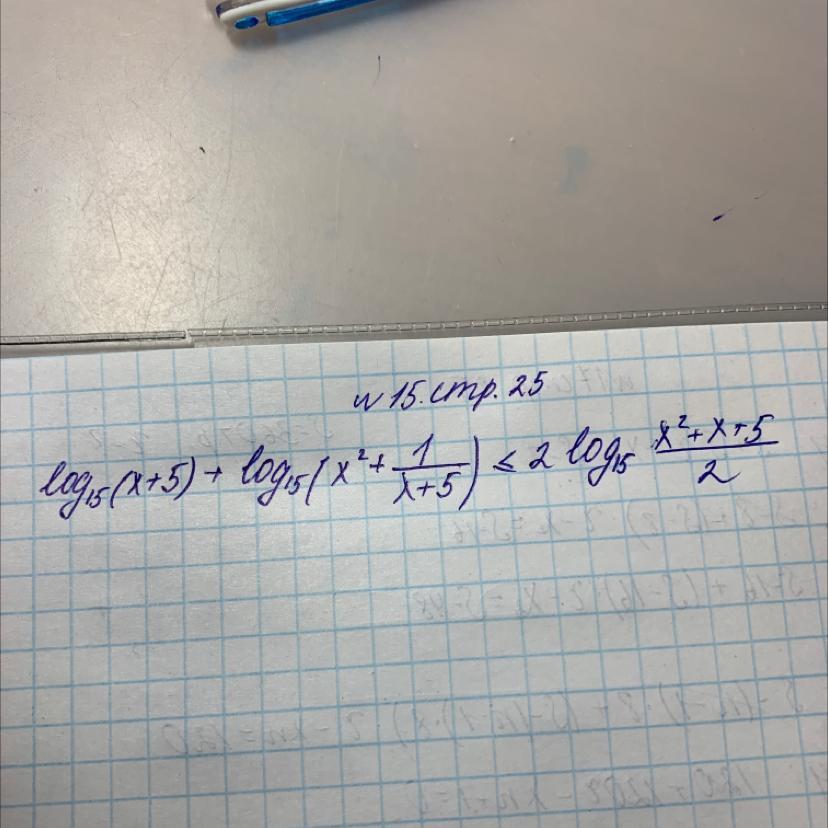 №15. стр. 25
log₁₅(x+5) + log₁₅(x² + 1/(x+5)) ≤ 2 log₁₅ (x²+x+5)/2